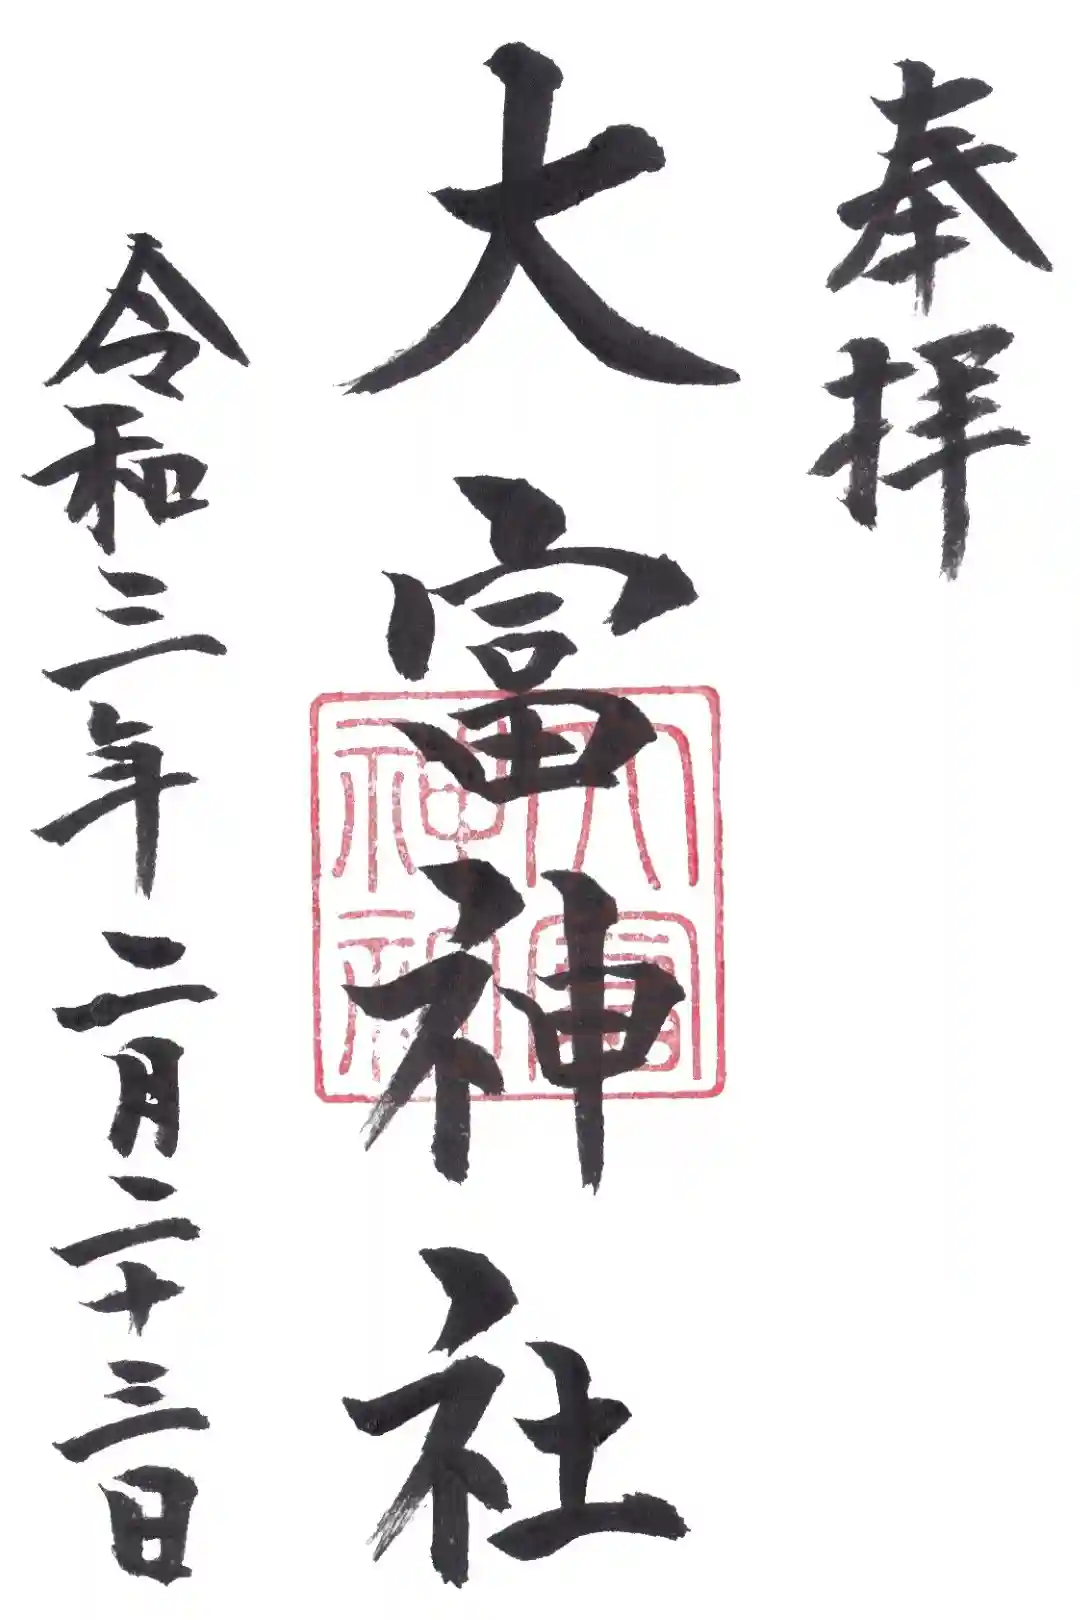 奉拝
大富神社
大富神社
令和三年二月二十三日